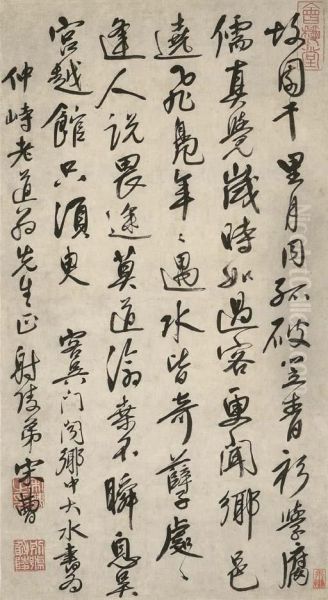 故園千里月同孤破笠青衫學腐
儒真覺歲時如過客更聞鄉邑
遶飛鳧年〻遇水皆奇孽處〻
逢人說畏途莫道滄桑不瞬息吳
宮越館只須臾
客吳門聞鄉中大水書為
仲峙老道翁先生正 射陵弟宋曹